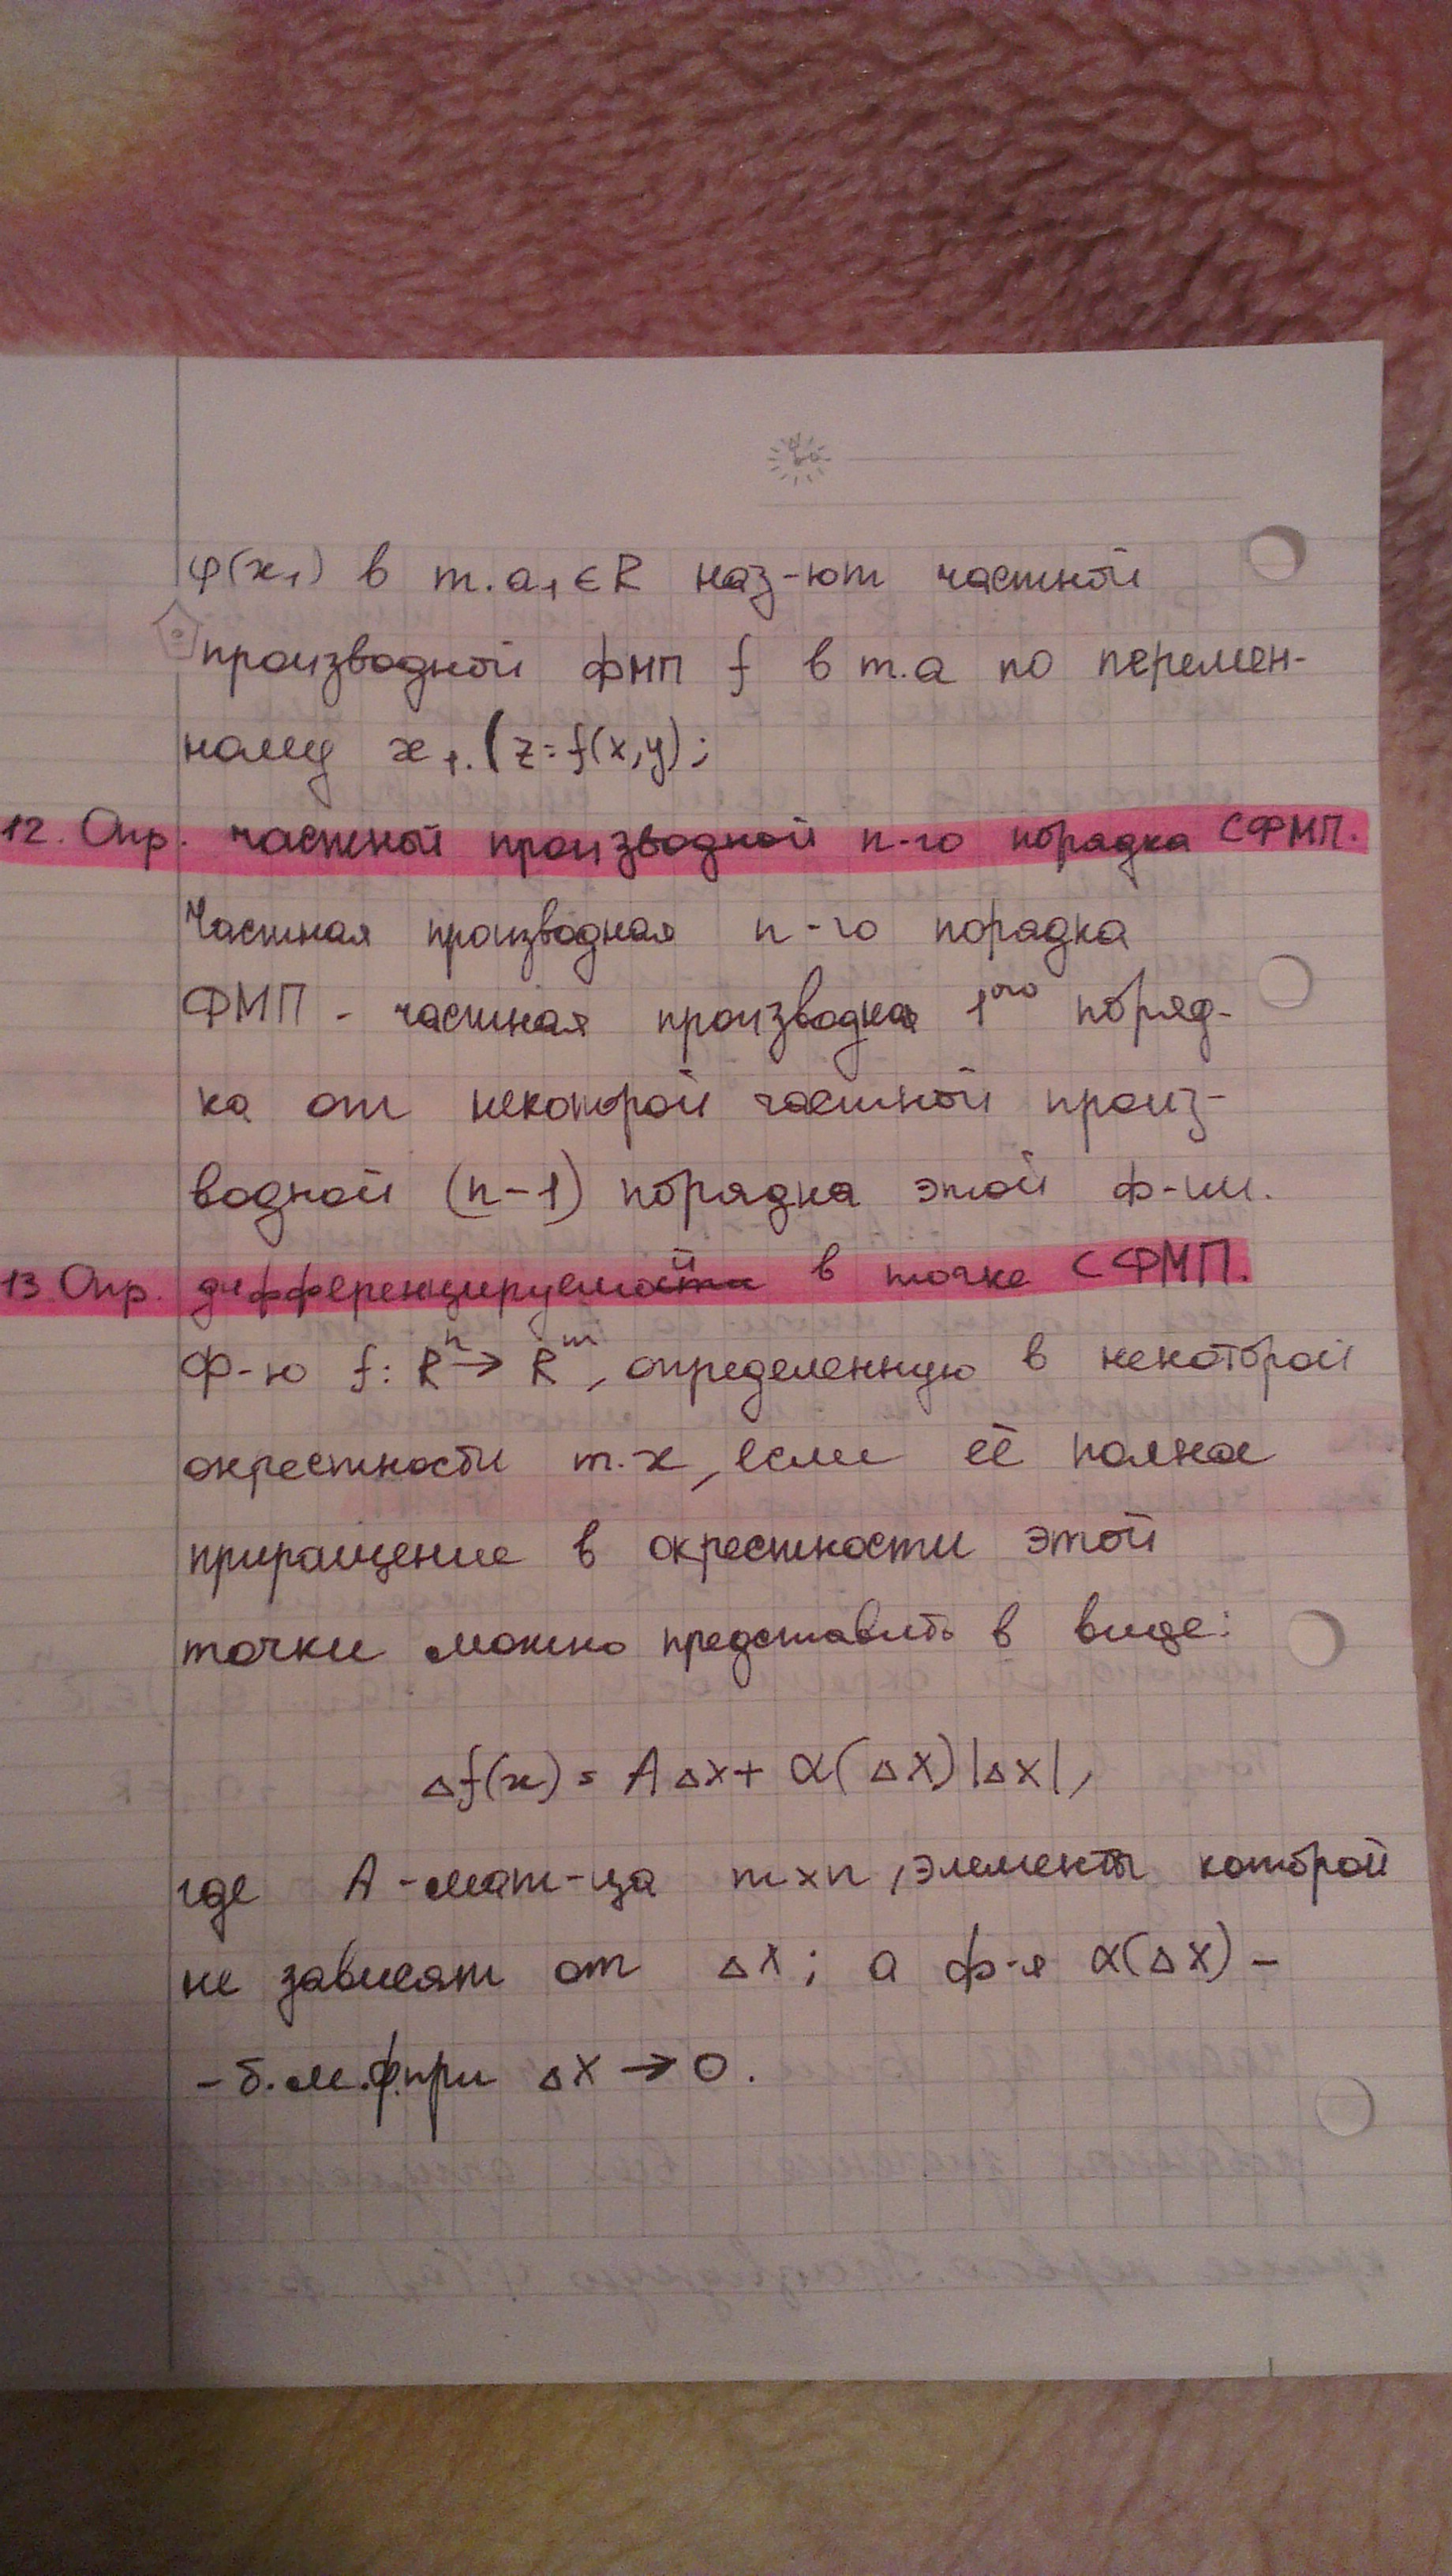 φ(x₁) в т. a₁ ∈ R наз-ют частной
производной ФМП f в т. a по перемен-
ному x₁. (z = f(x,y);
12. Опр. частной производной n-го порядка СФМП.
Частная производная n-го порядка
ФМП - частная производная 1ого поряд-
ка от некоторой частной произ-
водной (n-1) порядка этой ф-ии.
13 Опр. дифференцируемой в точке СФМП.
Ф-ю f: Rⁿ → Rᵐ, определенную в некоторой
окрестности т. x, если её полное
приращение в окрестности этой
точки можно представить в виде:
Δf(x) = AΔx + α(Δx)|Δx|,
где A - мат-ца m×n, элементы которой
не зависят от Δx; а ф-я α(Δx) -
- б.м.ф. при Δx → 0.